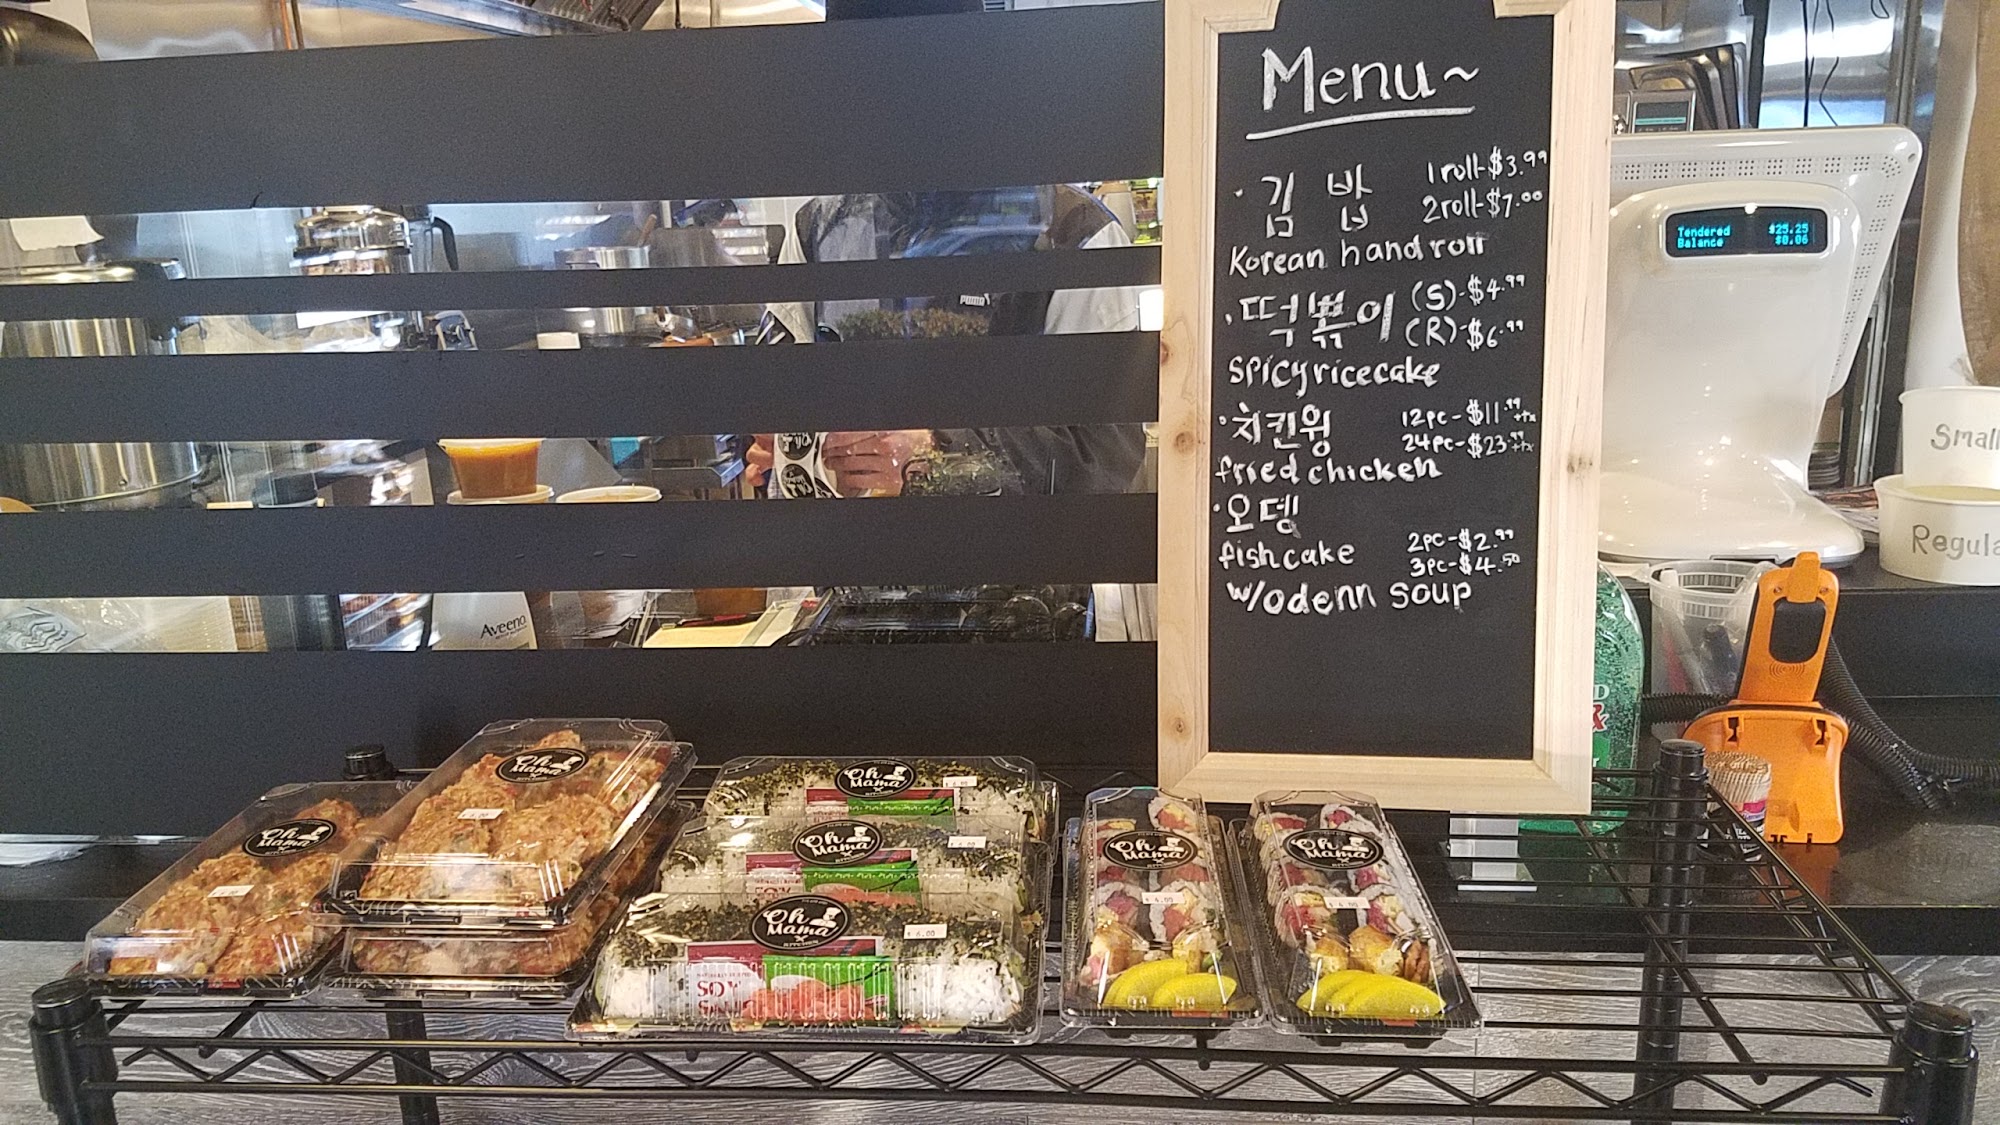 Menu~
· 김 밥 1 roll-$3.99
2 roll-$7.00
Korean hand roll
· 떡볶이 (S)-$4.99
(R)-$6.99
spicy rice cake
· 치킨윙 12pc-$11.99+tx
24pc-$23.99+tx
fried chicken
· 오뎅
fish cake 2pc-$2.99
3pc-$4.50
w/odenn soup
Tendered $25.25
Balance $0.06
Small
Aveeno
Oh Mama
Oh Mama
Oh Mama
Oh Mama
Oh Mama
KITCHEN
$ 6.00
SOY
Oh Mama
Oh Mama